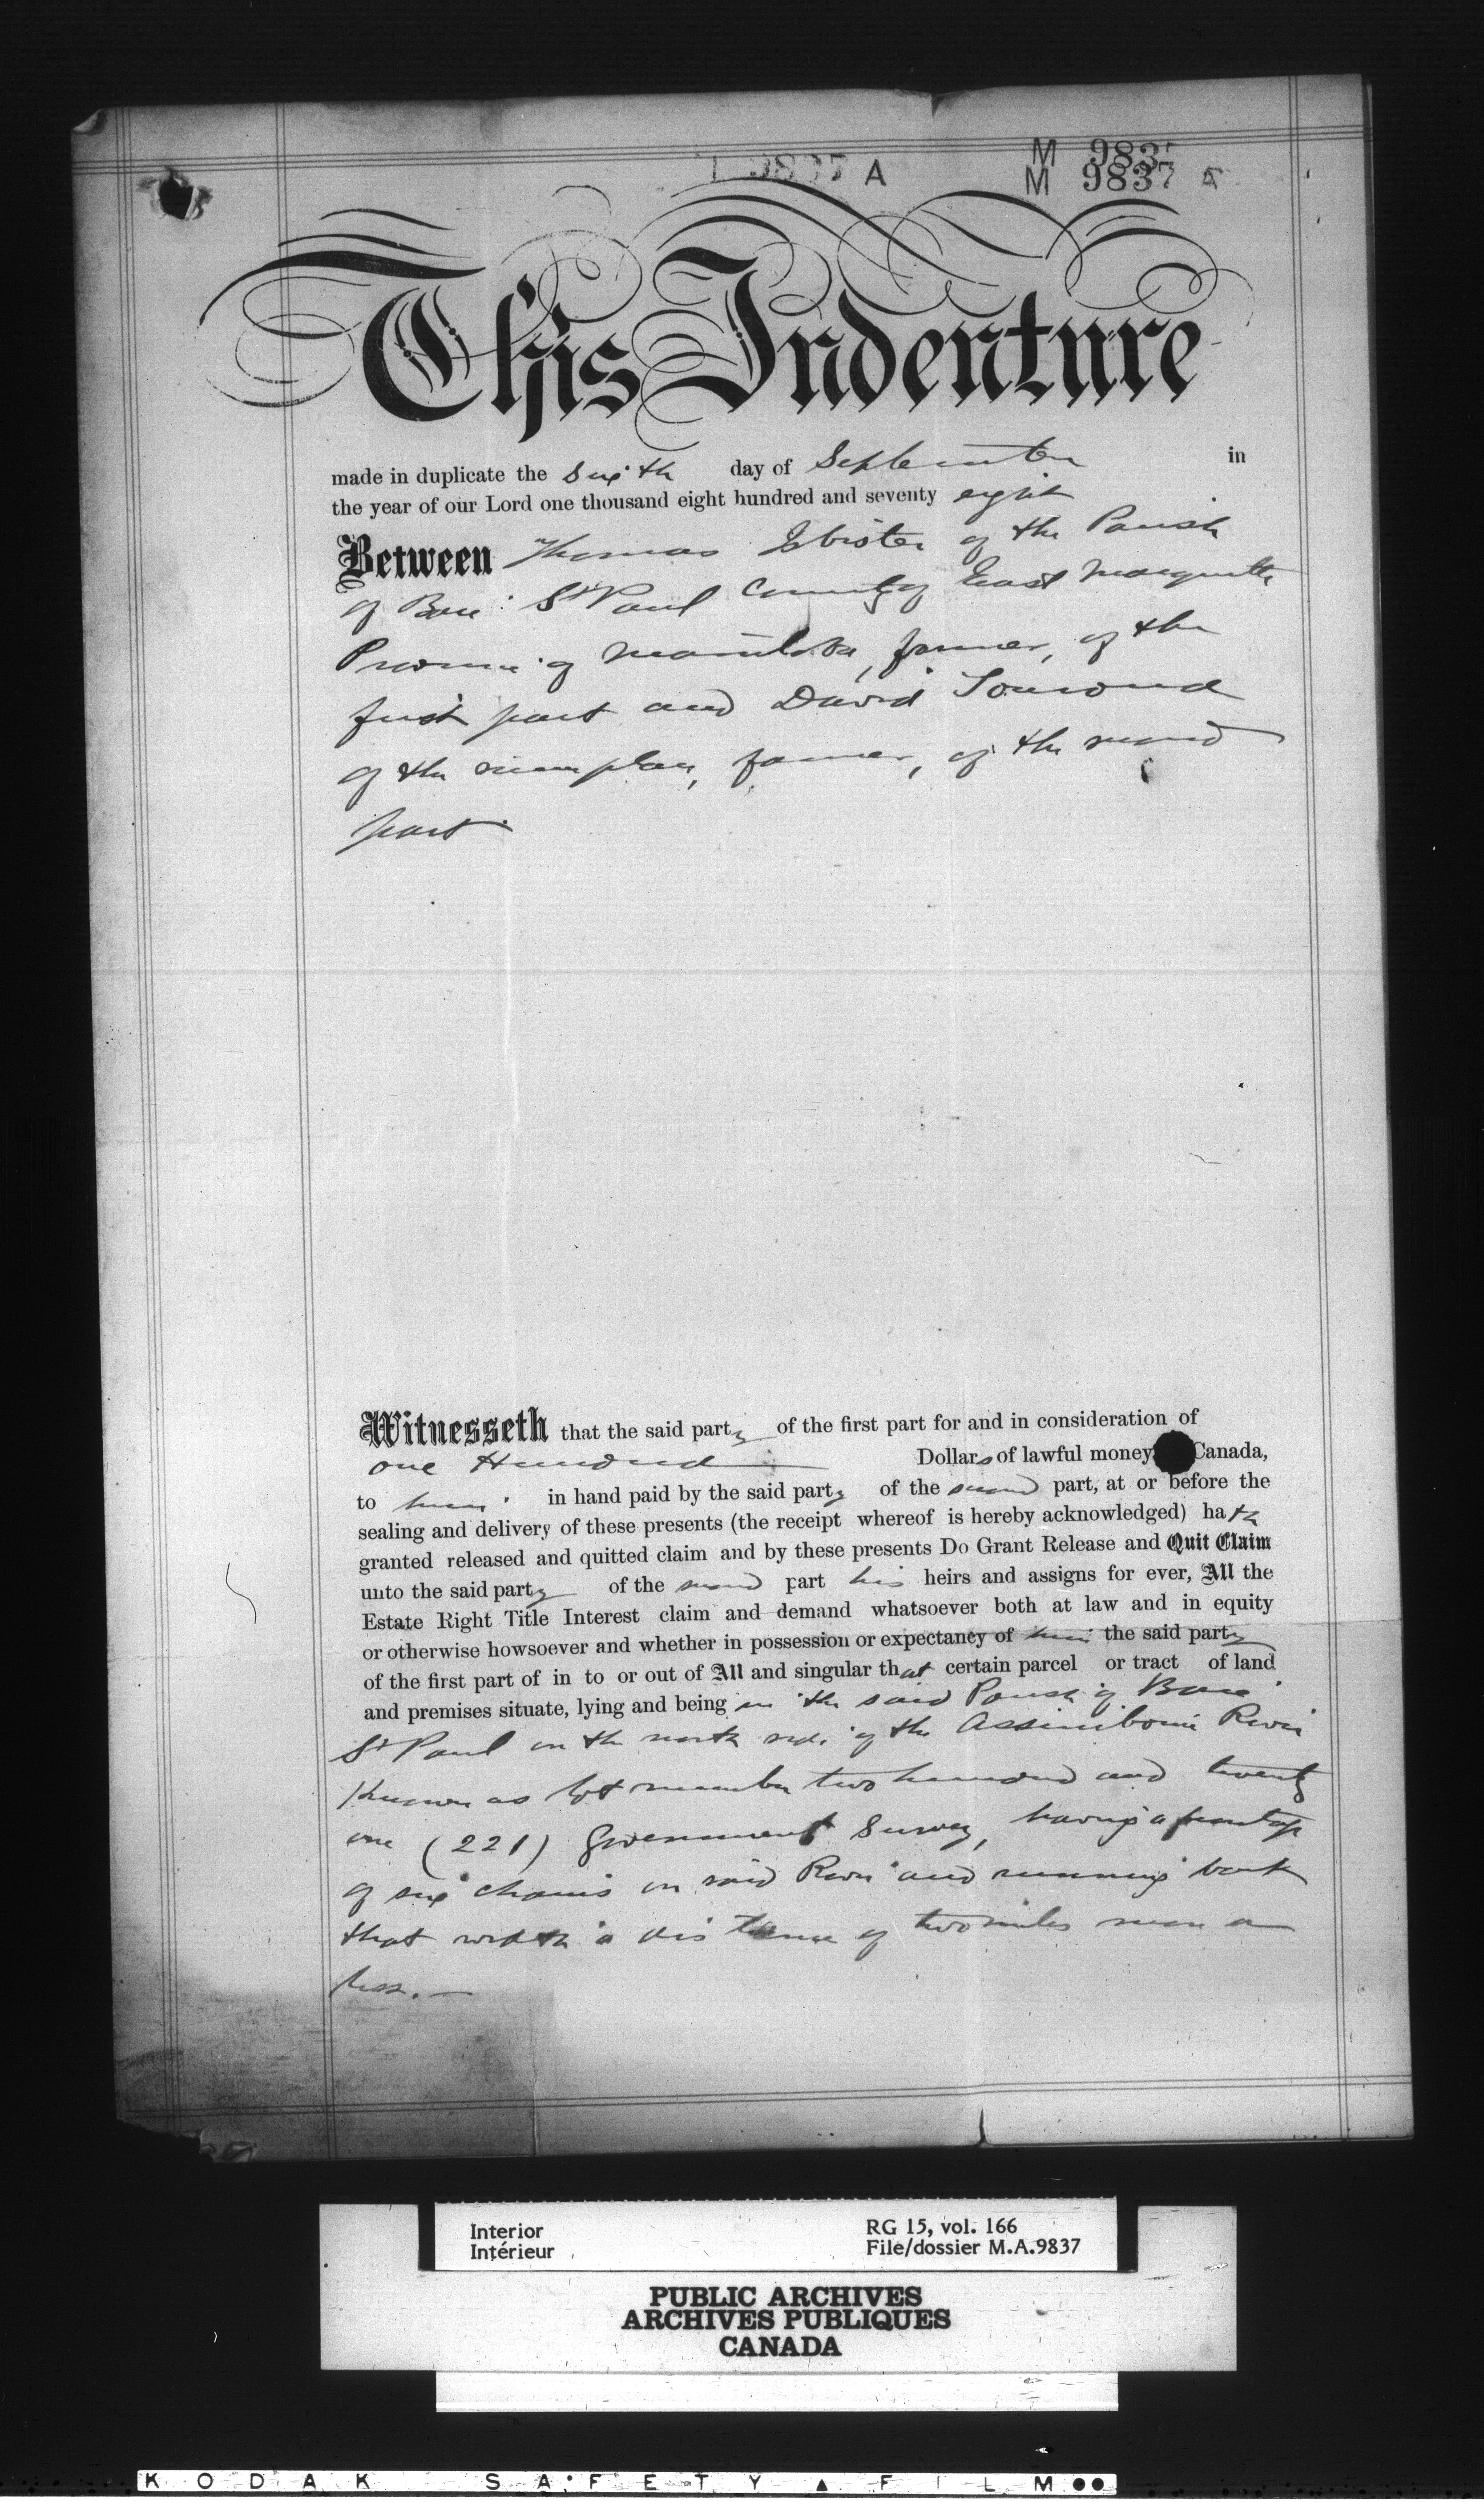 9837 A
M 983
M 9837
This Indenture
made in duplicate the Sixth day of September in
the year of our Lord one thousand eight hundred and seventy eight
Between Thomas Isbister of the Parish
of Baie St Paul County of East Marquette
Province of Manitoba, farmer, of the
first part and David
of the same place, farmer, of the second
part
Witnesseth that the said party of the first part for and in consideration of
one Hundred Dollars of lawful money Canada,
to him in hand paid by the said party of the second part, at or before the
sealing and delivery of these presents (the receipt whereof is hereby acknowledged) hath
granted released and quitted claim and by these presents Do Grant Release and Quit Claim
unto the said party of the second part his heirs and assigns for ever, All the
Estate Right Title Interest claim and demand whatsoever both at law and in equity
or otherwise howsoever and whether in possession or expectancy of him the said party
of the first part of in to or out of All and singular that certain parcel or tract of land
and premises situate, lying and being in the said Parish of Baie
St Paul on the north side of the Assiniboine River
Known as lot number two hundred and twenty
one (221) Government Survey, having a frontage
of six chains on said River and running back
that width a distance of two miles more or
less.—
Interior
Intérieur
RG 15, vol. 166
File/dossier M.A.9837
PUBLIC ARCHIVES
ARCHIVES PUBLIQUES
CANADA
KODAK SAFETY ▲ FILM ●●